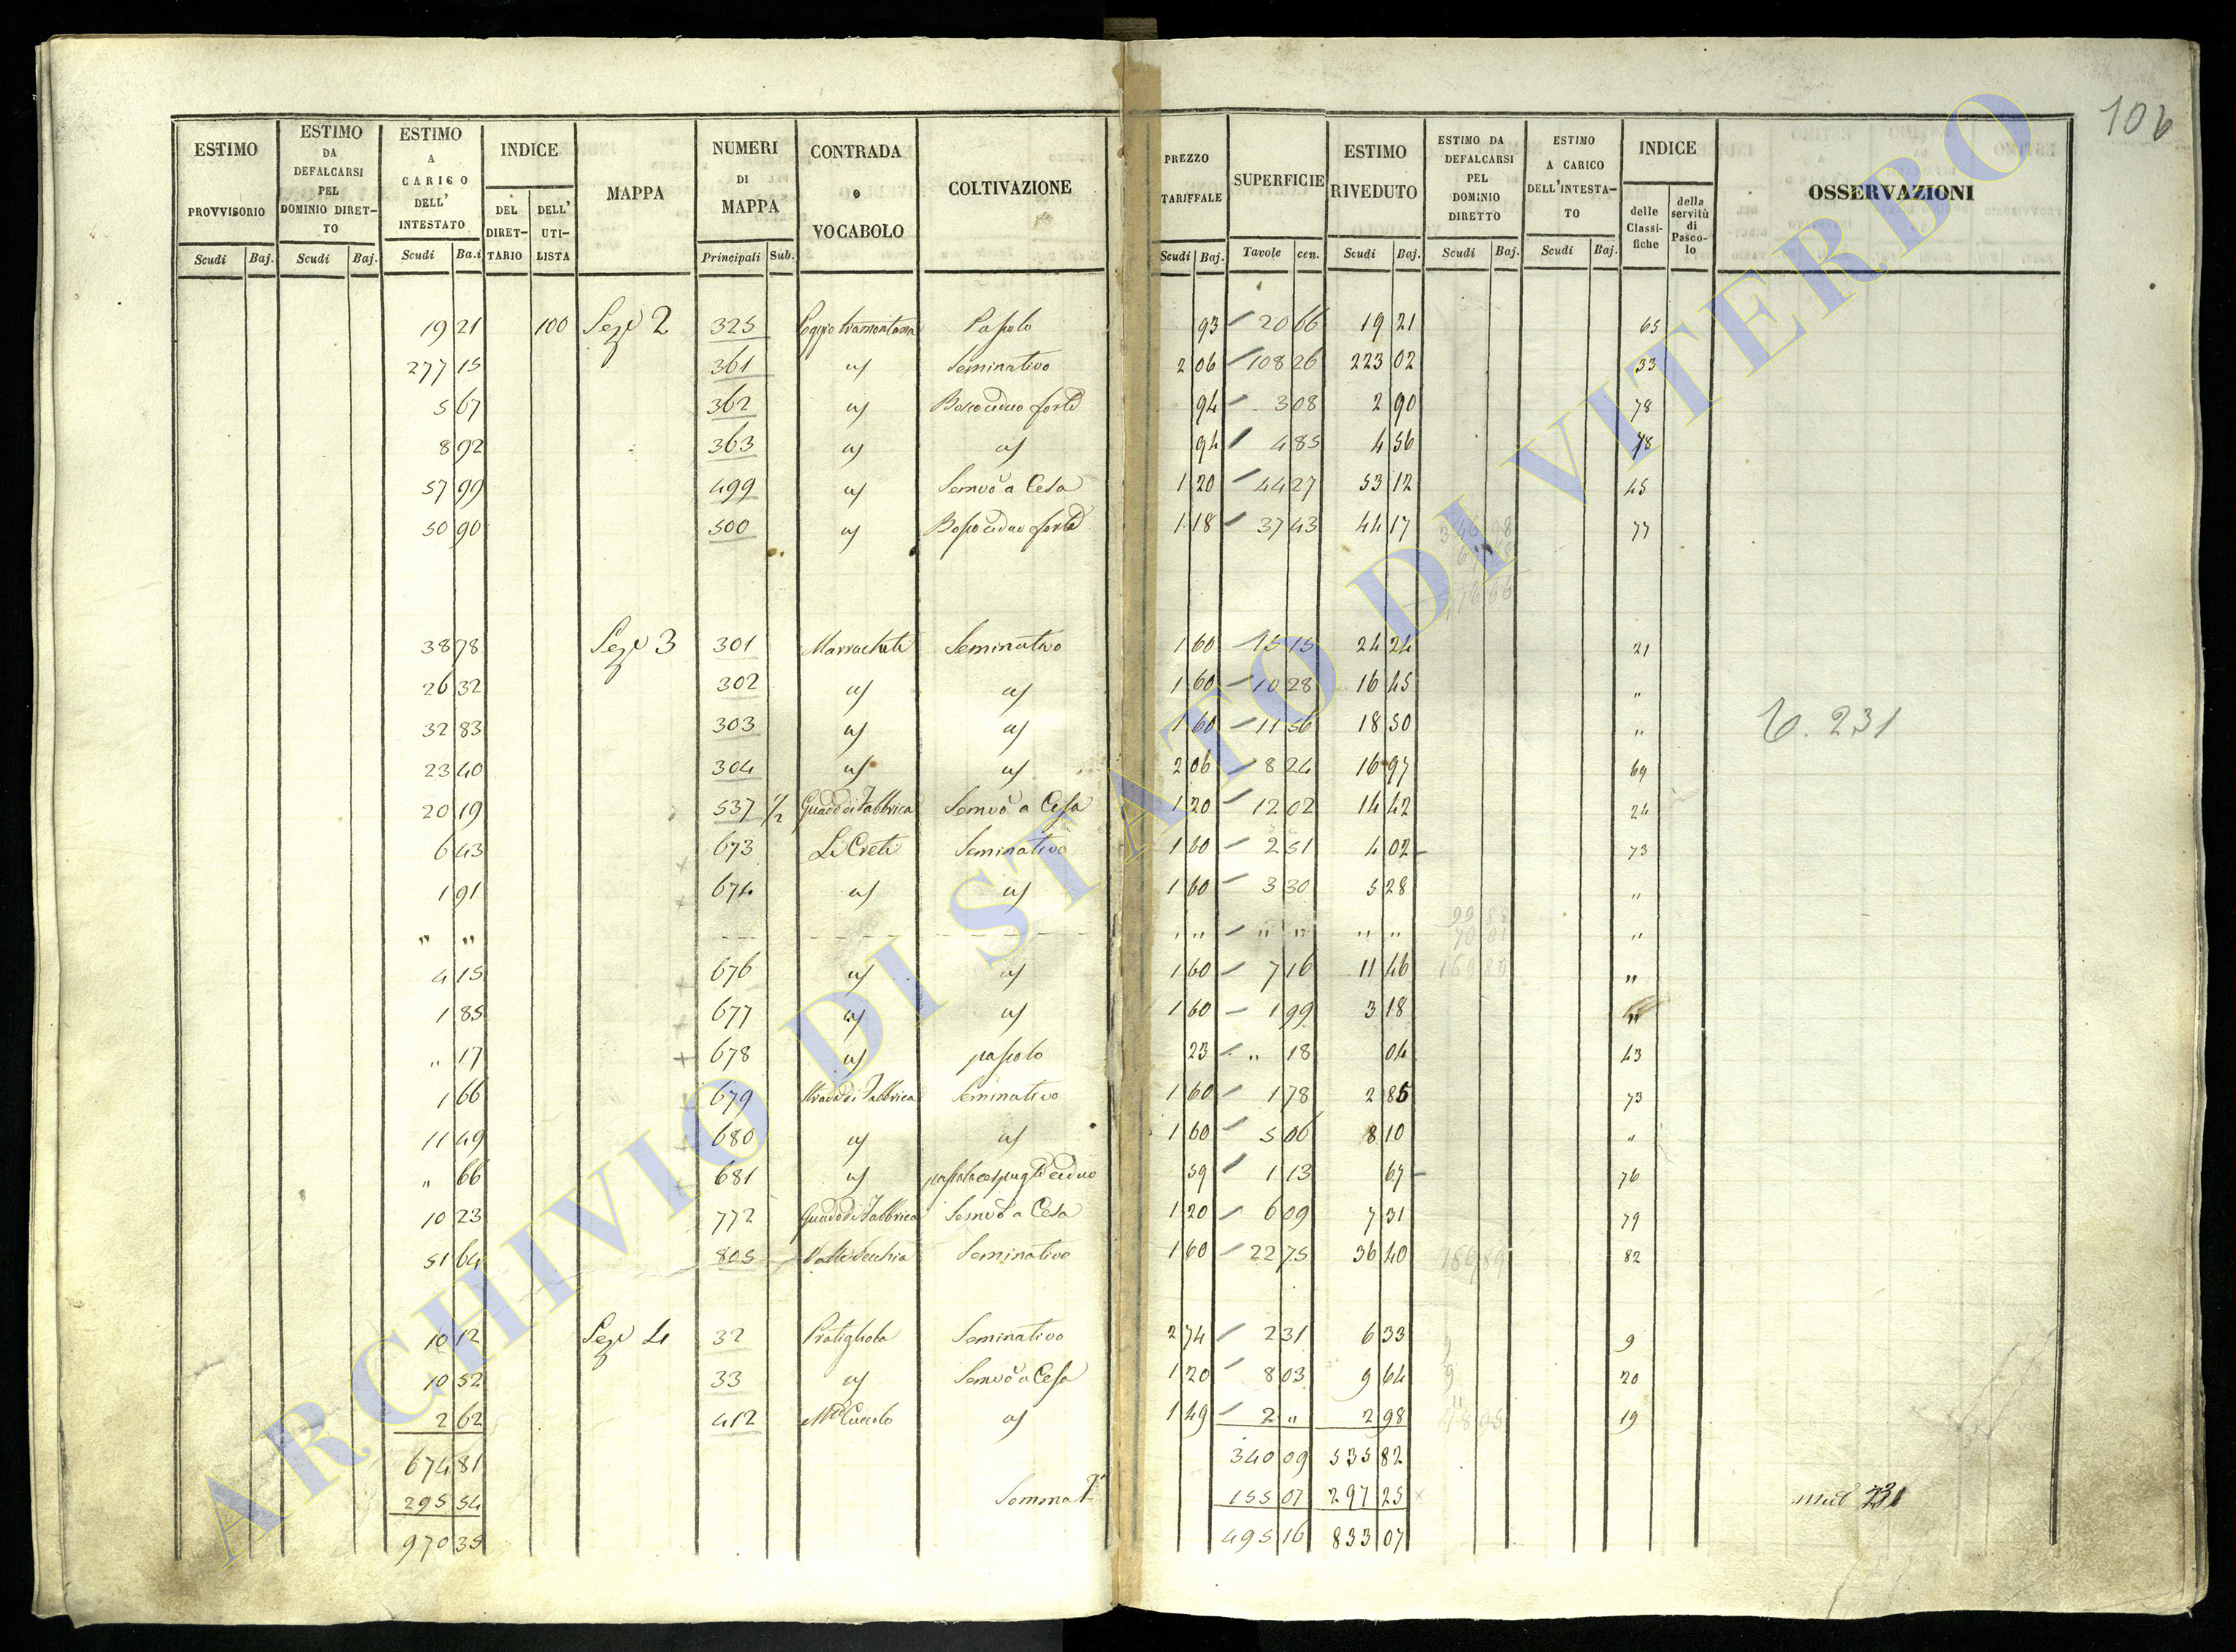 106
ESTIMO PROVVISORIO Scudi Baj.
ESTIMO DA DEFALCARSI PEL DOMINIO DIRETTO Scudi Baj.
ESTIMO A CARICO DELL' INTESTATO Scudi Ba.i
INDICE DEL DIRETTARIO DELL' UTILISTA
MAPPA
NUMERI DI MAPPA Principali Sub.
CONTRADA o VOCABOLO
COLTIVAZIONE
PREZZO TARIFFALE Scudi Baj.
SUPERFICIE Tavole cen.
ESTIMO RIVEDUTO Scudi Baj.
ESTIMO DA DEFALCARSI PEL DOMINIO DIRETTO Scudi Baj.
ESTIMO A CARICO DELL'INTESTATO Scudi Baj.
INDICE delle Classifiche della servitù di Pascolo
OSSERVAZIONI
19 21 100 Sez. 2 325 Poggio tramontana Pascolo 93 20 66 19 21 65
277 15 361 " Seminativo 2 06 108 26 223 02 33
5 67 362 " Bosco ceduo forte 94 3 08 2 90 78
8 92 363 " " 94 4 85 4 56 78
57 99 499 " Semvo a Cesa 1 20 44 27 53 12 45
50 90 500 " Bosco ceduo forte 1 18 37 43 44 17 77
38 78 Sez. 3 301 Seminativo 1 60 15 15 24 24 21
26 32 302 " " 1 60 10 28 16 45 "
32 83 303 " " 1 60 11 56 18 50 " 231
23 40 304 " " 2 06 8 24 16 97 69
20 19 537 1/2 Guado di Fabbrica Semvo a Cesa 1 20 12 02 14 42 24
6 43 673 Li Creti Seminativo 1 60 2 51 4 02 73
1 91 674 " " 1 60 3 30 5 28 "
" " " " " " " " "
4 15 676 " " 1 60 7 16 11 46 "
1 85 677 " " 1 60 1 99 3 18 "
" 17 678 " pascolo 23 " 18 04 43
1 66 679 Strada di Fabbrica Seminativo 1 60 1 78 2 85 73
11 49 680 " " 1 60 5 06 8 10 "
" 66 681 " 59 1 13 67 76
10 23 772 Guado di Fabbrica Semvo a Cesa 1 20 6 09 7 31 79
51 64 805 Valle Vecchia Seminativo 1 60 22 75 36 40 82
10 12 Sez. 4 32 Seminativo 2 74 2 31 6 33 9
10 52 33 " Semvo a Cesa 1 20 8 03 9 64 20
2 62 412 " 1 49 2 " 2 98 19
674 81 340 09 535 82
295 54 Somma 155 07 297 25
970 35 495 16 833 07
ARCHIVIO DI STATO DI VITERBO